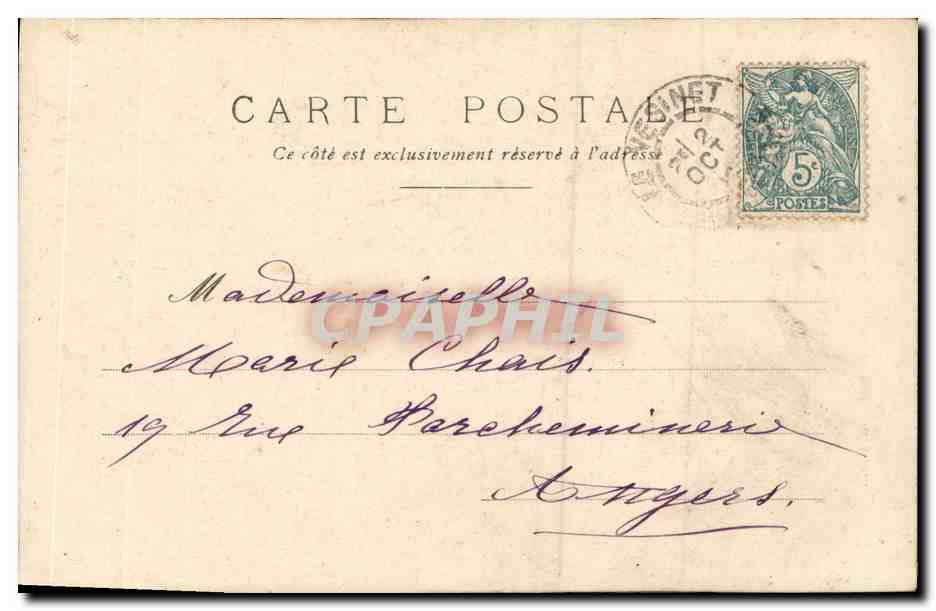 CARTE POSTALE
Ce côté est exclusivement réservé à l'adresse
2
OCT
5c
POSTES
Mademoiselle
CPAPHIL
Marie Chais.
19 Rue Parcheminerie
Angers.